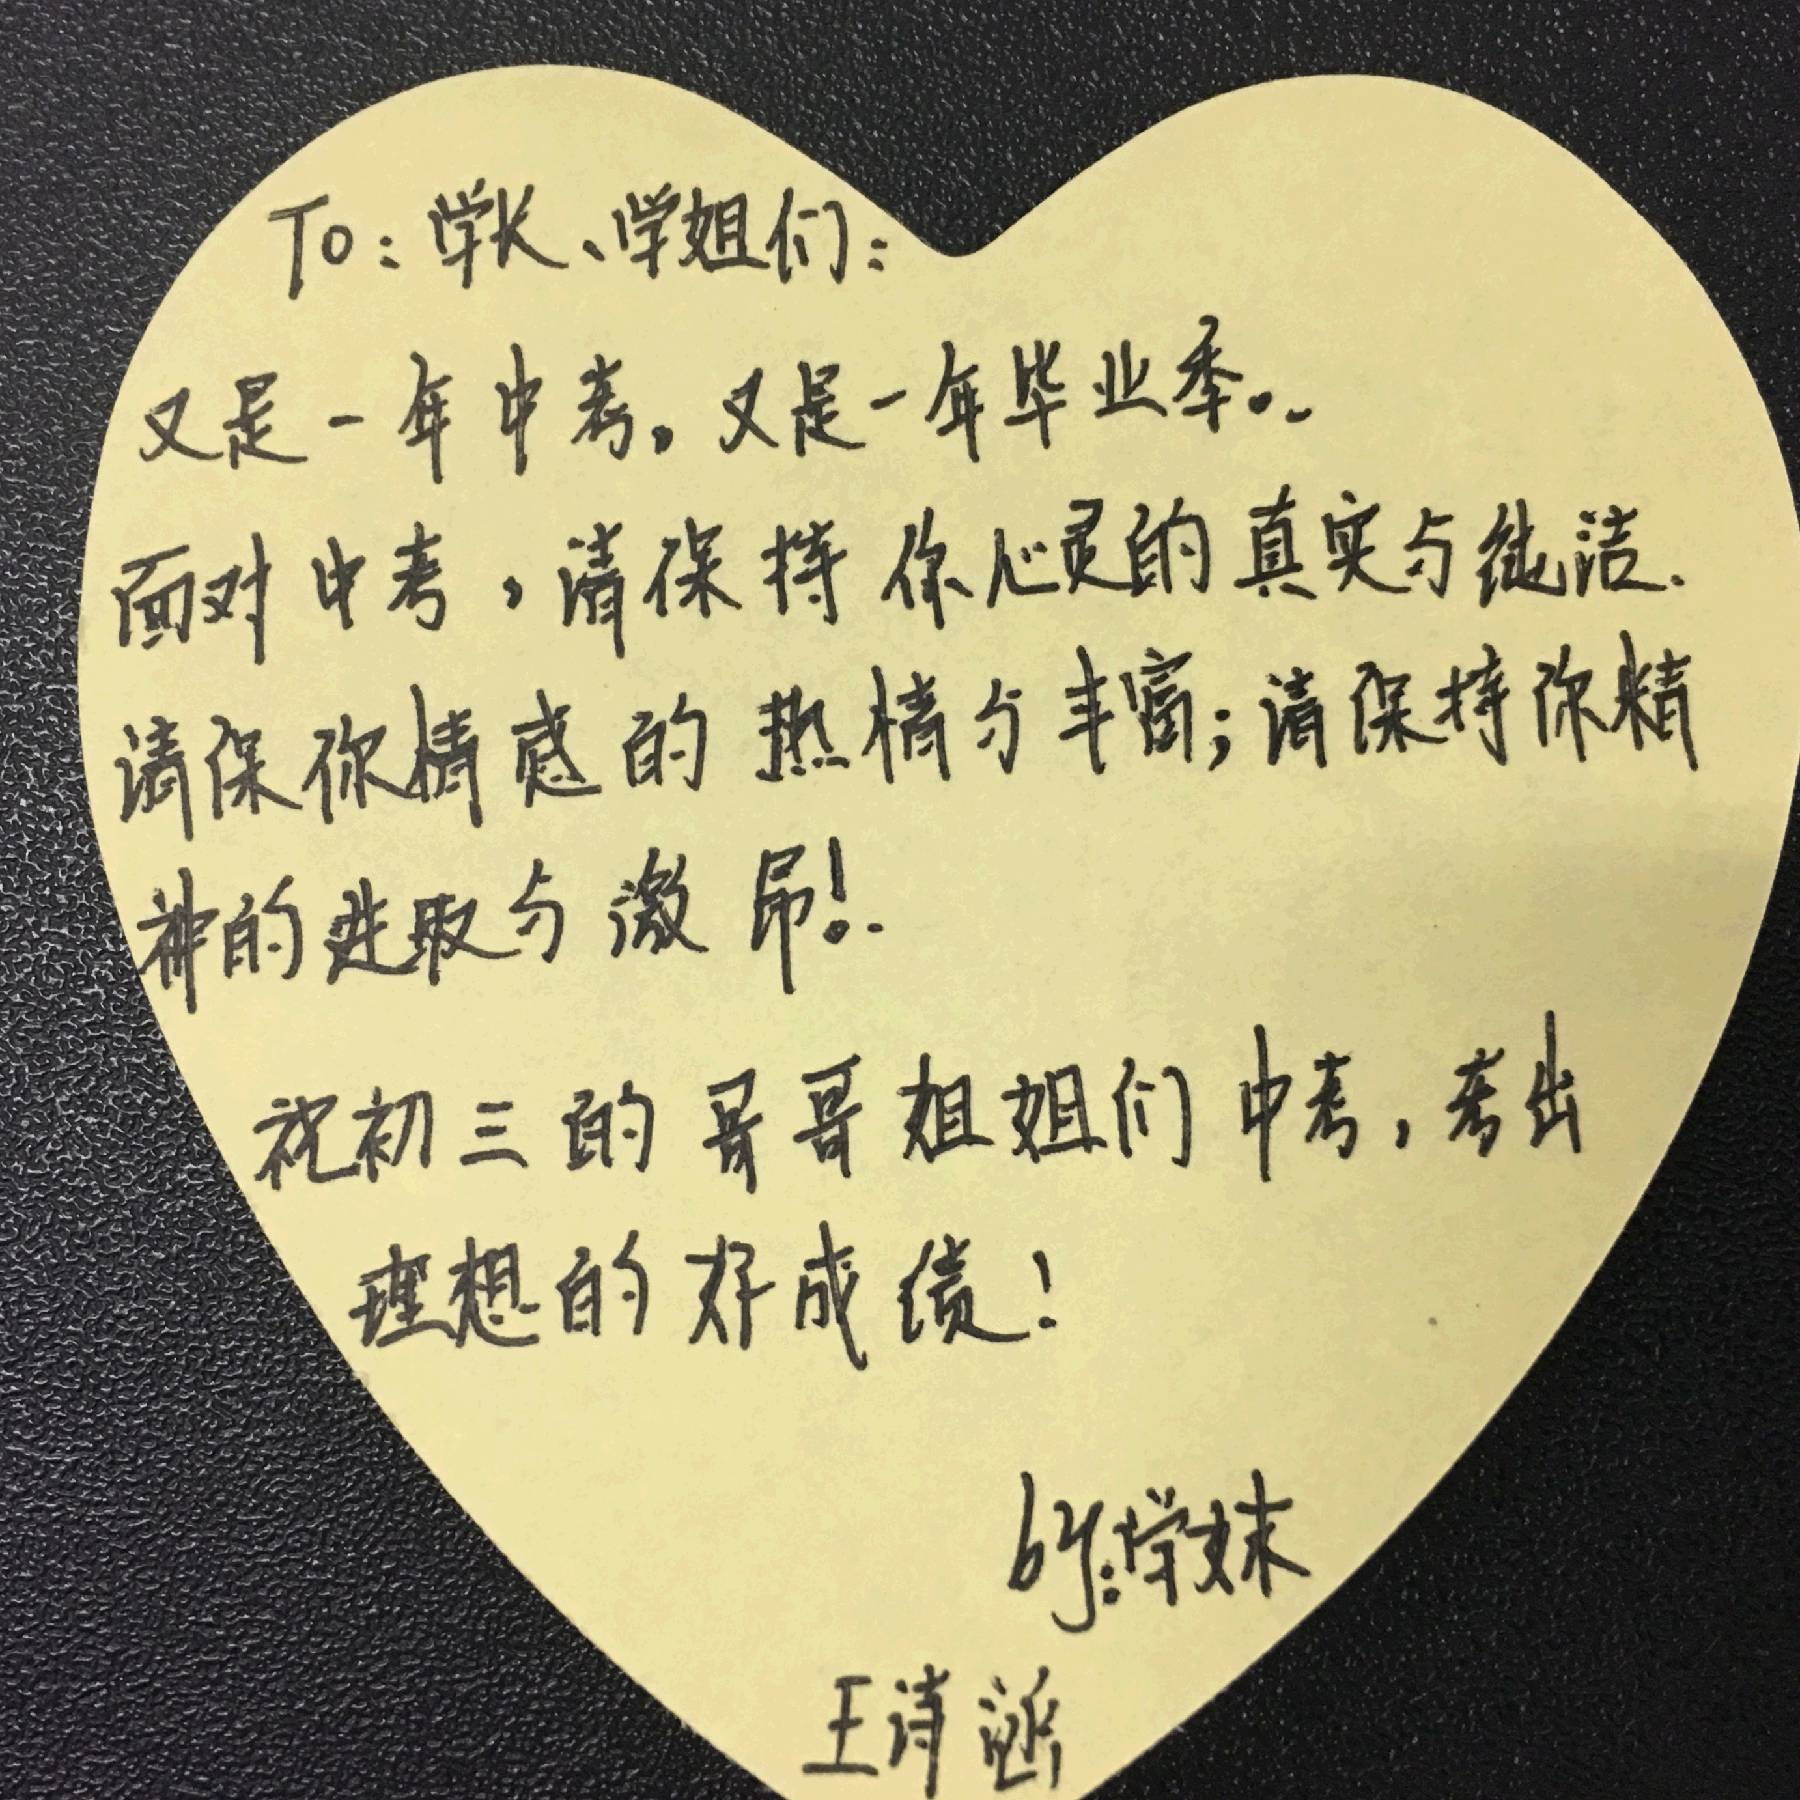 To:学长、学姐们:
又是一年中考。又是一年毕业季..
面对中考,请保持你心灵的真实与纯洁.
请保你情感的热情与丰富;请保持你精
神的进取与激昂!.
祝初三的哥哥姐姐们中考,考出
理想的好成绩!
by:学妹
王诗涵